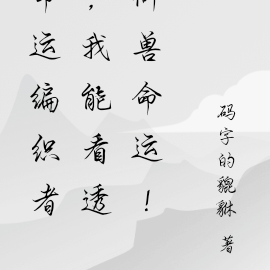 运编织者
，我能看透
兽命运！
码字的貔貅 著